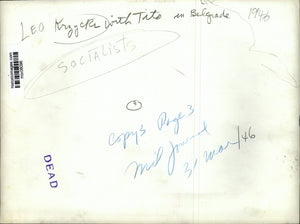 Leo Krzycki with Tito in Belgrade 1946
SOCIALISTS
copy 3 Page 3
Mil Journal
31 Mar/46
DEAD